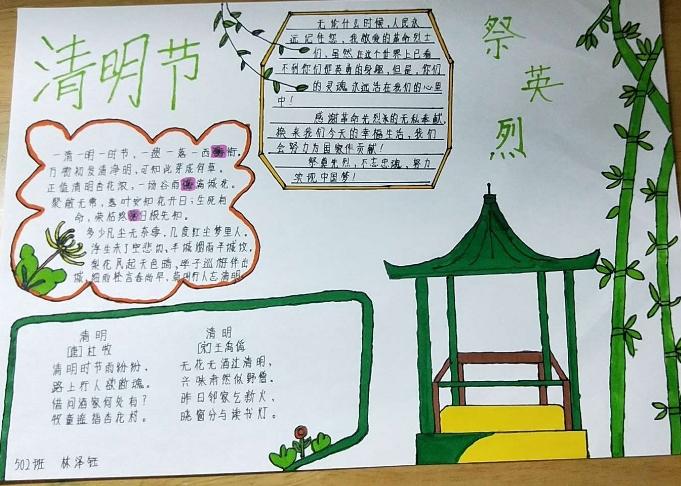 清明节
祭英烈
无论什么时候，人民永
远记住您，我敬爱的革命烈士
们，虽然在这个世界上已看
不到你们那英勇的身躯，但是，你们
的灵魂永远活在我们的心里
中！
感谢革命先烈们的无私奉献，
换来我们今天的幸福生活，我们
会努力为国家作贡献！
祭奠先烈，不忘忠魂，努力
实现中国梦！
一清一明一时节，一提一落一西街。
万物初发清净明，可知此芽成何草。
正值清明百花浓，一场谷雨离城花。
聚散无常，落叶安知花开日；生死有
命，荣枯终归根先知。
多少凡尘无奈事，几度红尘梦里人。
浮生未了空悲切，半城烟雨半城坟。
梨花风起天色晴，学子巡游伴出
城，细雨轻言春尚早，莫嘲行人志清明
清明
[唐]杜牧
清明时节雨纷纷，
路上行人欲断魂。
借问酒家何处有？
牧童遥指杏花村。
清明
[宋]王禹偁
无花无酒过清明，
兴味萧然似野僧。
昨日邻家乞新火，
晓窗分与读书灯。
502班 林泽钰